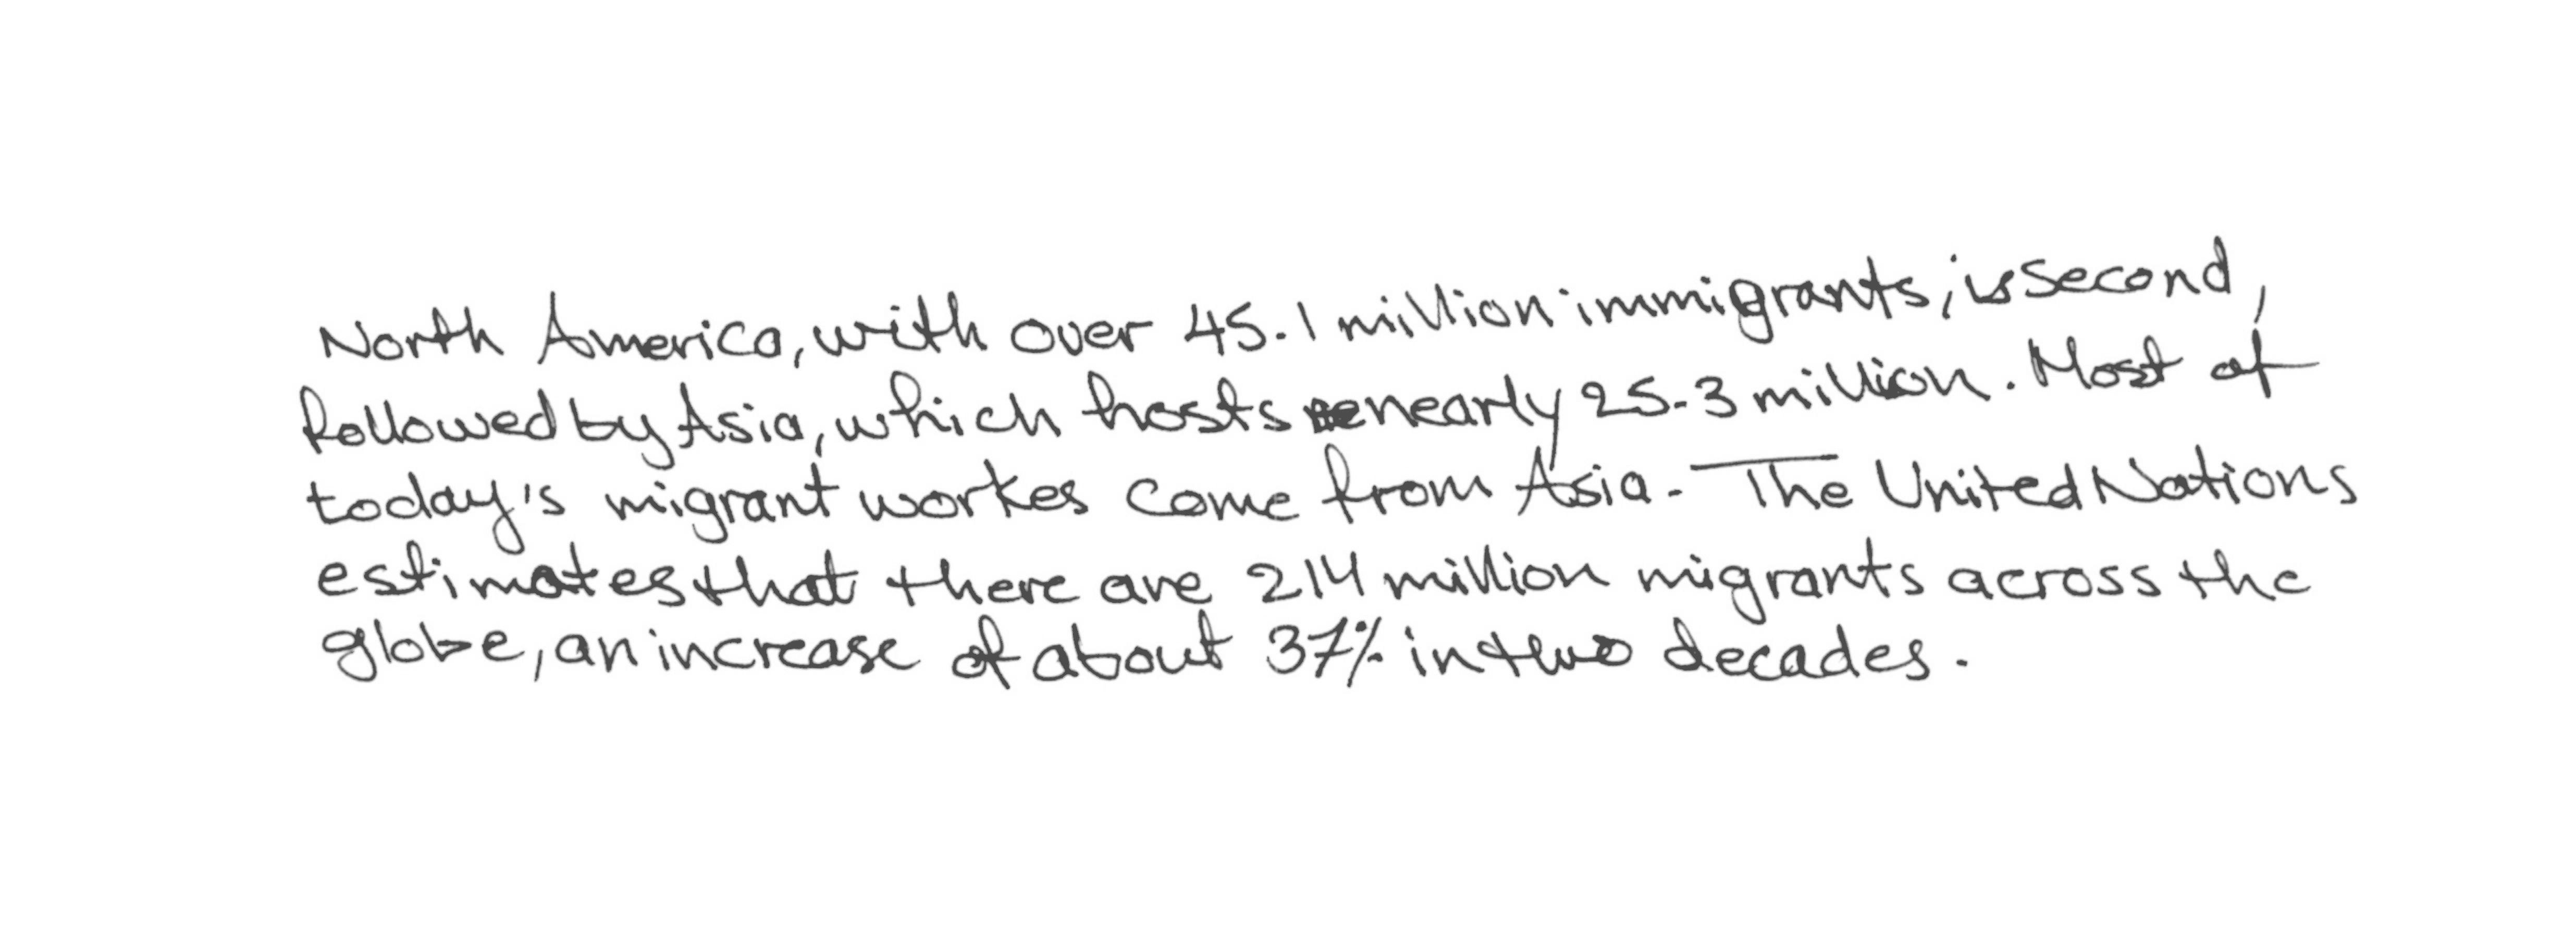 North America, with over 45.1 million immigrants, is second,
followed by Asia, which hosts nearly 25.3 million. Most of
today's migrant workes come from Asia. The United Nations
estimates that there are 214 million migrants across the
globe, an increase of about 37% in two decades.